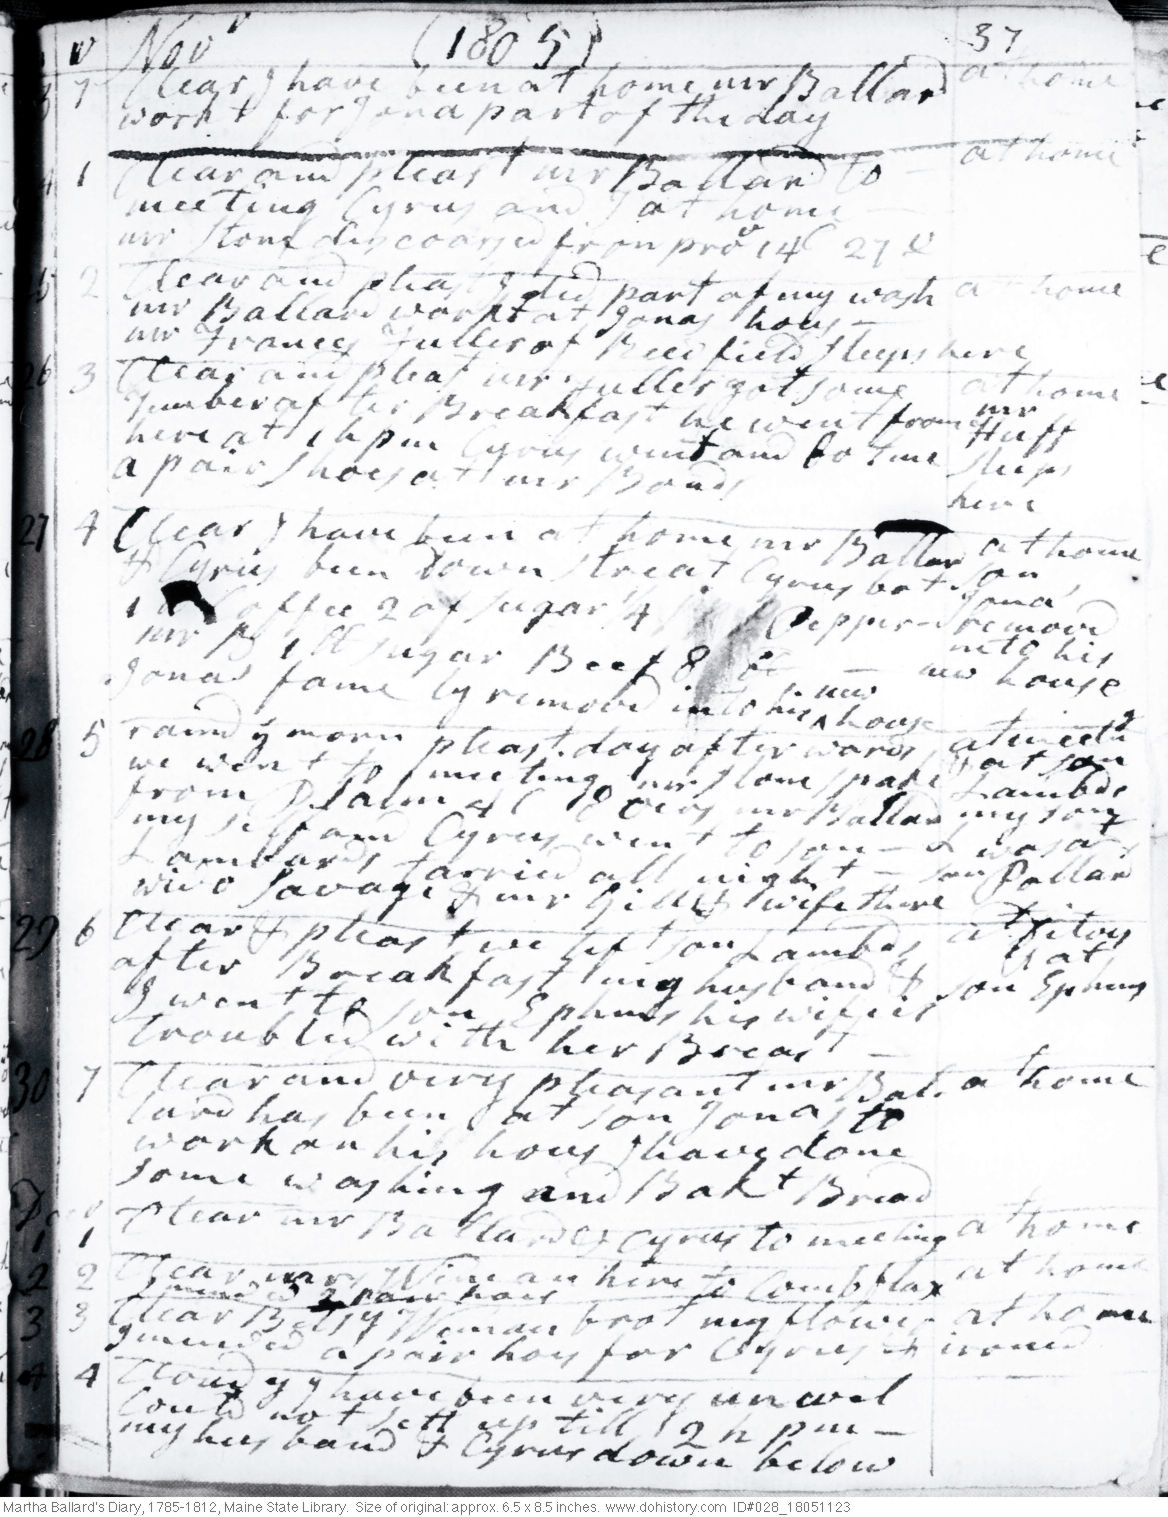 w Novr (1805) 37
7 Clear I have been at home mr Ballard at home
workt for Jona part of the day
1 Clear and pleast mr Ballard to at home
meeting Cyrus and I at home
mr Stone discoarsd from pro 14 C 27 v
2 Clear and pleast I did part of my wash at home
mr Ballard workt at Jonas hous
mr Frances Fuller of Reedfield sleeps here
26 3 Clear and pleast mr Fuller got some at home
Lumber after Breakfast he went from mr
here at 1 h pm Cyrus went and bot me Huff
a pair shoes at mr Bonds sleeps
here
27 4 Clear I have been at home mr Ballard at home
& Cyrus been down street Cyrus bot son
1 Coffee 2 of sugar 1/4 Pepper Jona
mr B 1 lb sugar Beef 8 removd
into his
Jonas fame ly removd into his new house new house
28 5 raind y morn pleast day afterwards at meetn
we went to meeting mr Stone spake & at son
from Psalm 4 C 8 mr Ballard Lambds
my self and Cyrus went to son my son
Lambards tarried all night was at
wido Savage & mr Gill & wife there son Pollard
29 6 Clear & pleast we left son Lambds at ditoes
after Breakfast my husband & & at
I went to son Ephms his wife is son Ephms
troubled with her Breast
30 7 Clear and very pleasant mr Bal at home
lard has been at son Jonas to
work on his hous I have done
some washing and Bakt Bread
Dec
1 1 Clear mr Ballard & Cyrus to meeting at home
2 2 Clear mrs Wiman here to Comb flax at home
I mended 2 pair hois
3 3 Clear Betsy Wiman brot my flower at home
I mended a pair hoss for Cyrus & ironed
4 4 Cloudy I have been very unwel
Could not sett up till 2 h pm
my husband & Cyrus down below
Martha Ballard's Diary, 1785-1812, Maine State Library. Size of original: approx. 6.5 x 8.5 inches. www.dohistory.com ID#028_18051123